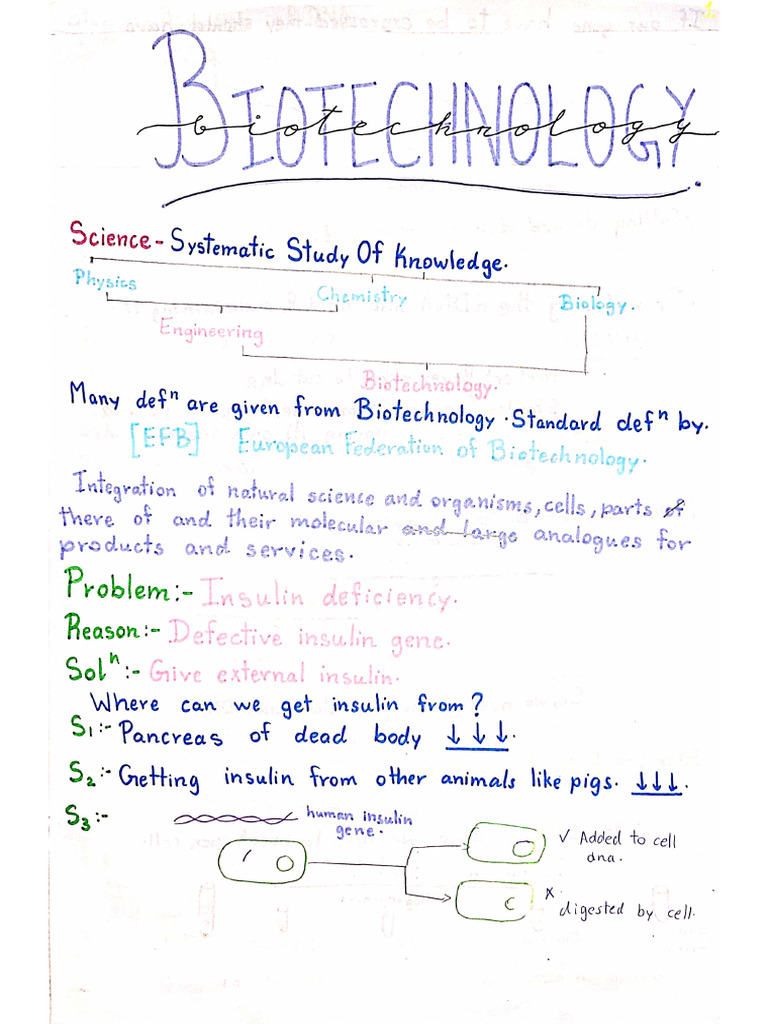 1
BIOTECHNOLOGY
biotechnology
Science - Systematic Study Of Knowledge.
Physics Chemistry Biology.
Engineering
Biotechnology.
Many defⁿ are given from Biotechnology. Standard defⁿ by.
[EFB] European Federation of Biotechnology.
Integration of natural science and organisms, cells, parts of
there of and their molecular and large analogues for
products and services.
Problem:- Insulin deficiency.
Reason:- Defective insulin gene.
Solⁿ:- Give external insulin.
Where can we get insulin from?
S₁:- Pancreas of dead body ↓ ↓ ↓.
S₂:- Getting insulin from other animals like pigs. ↓↓↓.
S₃:- human insulin
gene.
✓ Added to cell
dna.
✗ digested by cell.